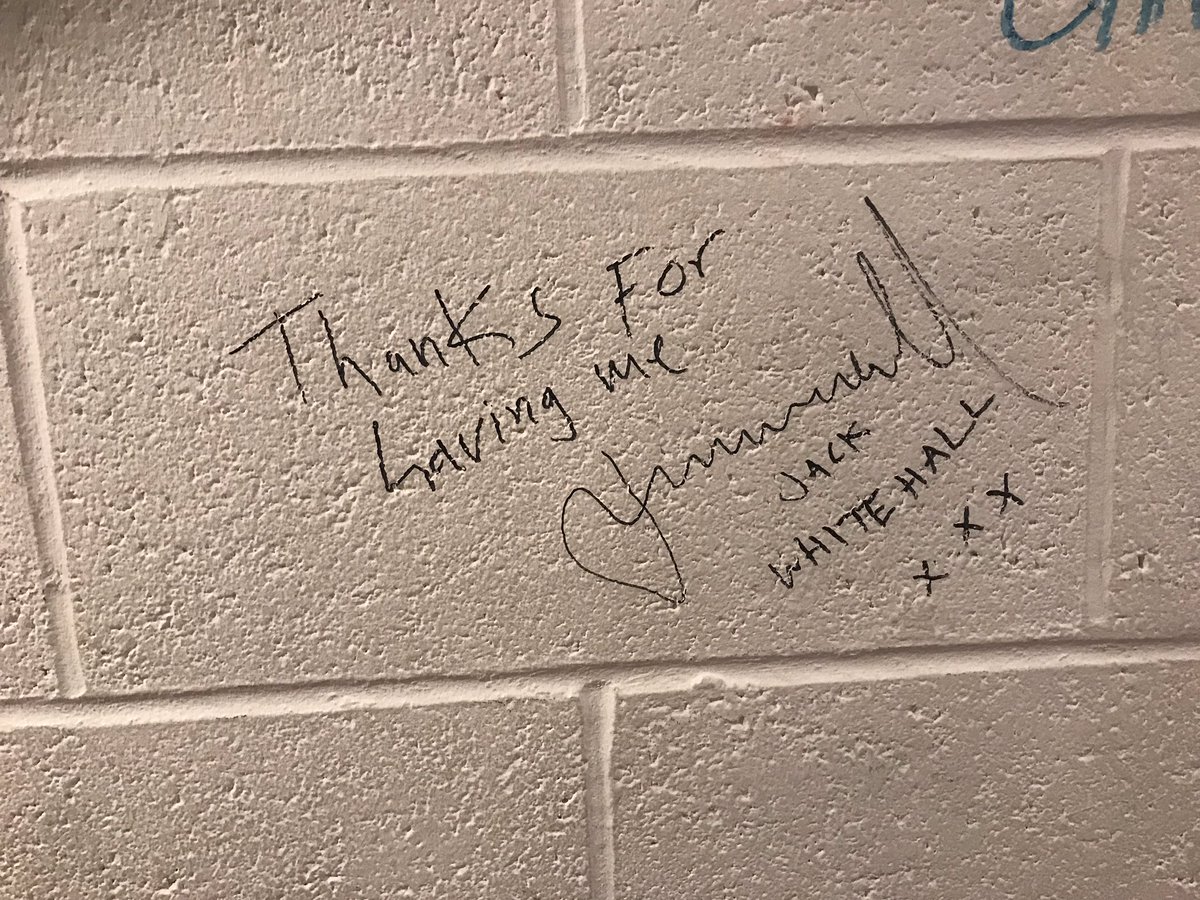 Thanks For
having me
JACK
WHITEHALL
x x x